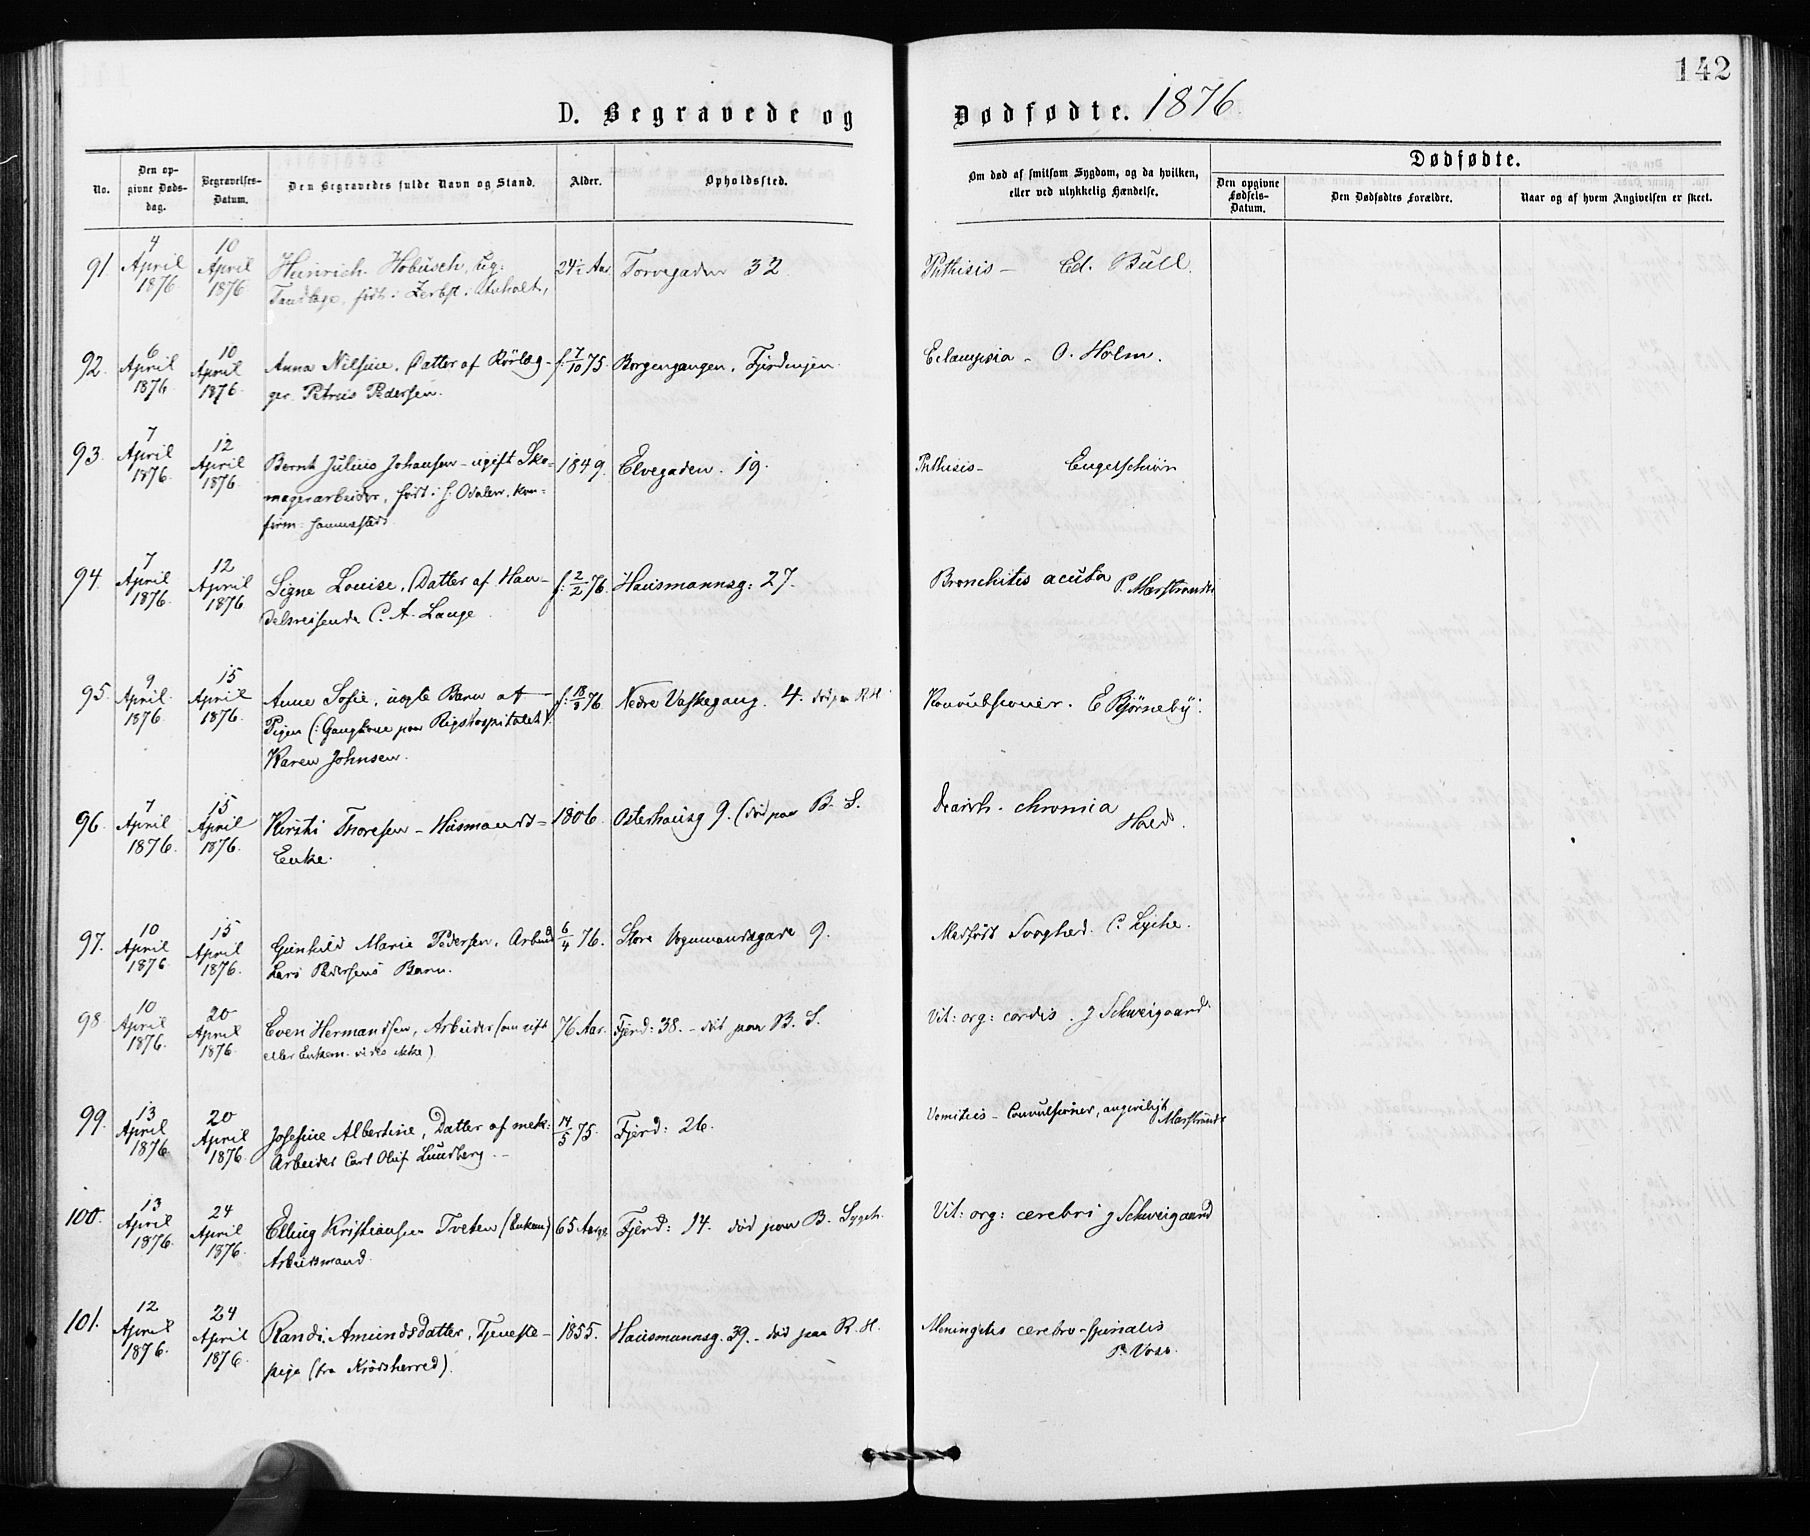 142
D. Begravede og Dødfødte. 1876.
No.
Den opgivne Dødsdag.
Begravelses-Datum.
Den Begravedes fulde Navn og Stand.
Alder.
Opholdssted.
Om død af smitsom Sygdom, og da hvilken,
eller ved ulykkelig Hændelse.
Dødfødte.
Den opgivne Fødsels-Datum.
Den Dødfødtes Forældre.
Naar og af hvem Angivelsen er skeet.
91. 4 April 1876 10 April 1876 Heinrich Hobusch, ug: 24½ Aar Torvegaden 32 Phthisis – Ed. Bull.
Tandlæge, født i Zerbst i Anhalt,
92. 6 April 1876 10 April 1876 Anna Nilsine, Datter af Rörlæg- f: 7/10 75. Borgengangen, Fjerdingen Eclampsia – O. Holm.
ger Petrus Pedersen.
93. 7 April 1876. 12 April 1876. Bernt Julius Johansen – ugift Sko- 1849. Elvegaden. 19. Phthisis – Engelschiøn
magerarbeider, født i S: Odalen, kon-
firm: sammesteds.
94. 7 April 1876. 12 April 1876 Signe Louise, Datter af Han- f: 2/2 76. Hausmannsg: 27. Bronchitis acuta P. Marstrander
delsreisende C. A. Lange.
95. 9 April 1876. 15 April 1876. Anne Sofie, uægte Barn af f: 18/3 76. Nedre Vaskegang. 4. død paa R.H. Konvulsioner. E Bjørneby.
Pigen (: Gangkone paa Rigshospitalet)
Karen Johnsen.
96. 7 April 1876. 15 April 1876. Kirsti Thoresen – Husmands- 1806. Osterhausg 9. (død paa B. S. Diarrh. chronica Hald.
Enke.
97. 10 April 1876. 15 April 1876. Gunhild Marie Pedersen, Arbeid 6/4 76. Store Vognmandsgade 9. Medfødt Svaghed. C. Lyche.
Lars Pedersens Barn.
98. 10 April 1876. 20 April 1876. Even Hermandsen, Arbeider (om gift 76 Aar. Fjerd: 38. – død paa B. S. Vit: org: cordis. J Schweigaard.
eller Enkem. vides ikke)
99. 13 April 1876. 20 April 1876. Josefine Albertine, Datter af mek: 14/5 75. Fjerd: 26. Vomitus – Convulsioner, angiveligt Marstrander
Arbeider Carl Oluf Lundberg. –
100. 13 April 1876. 24 April 1876. Elling Kristiansen Tveten (Enkem) 65 Aar Fjerd: 14. død paa B. Sygeh. Vit: org: cerebri J Schweigaard
Arbeidsmand.
101. 12 April 1876. 24 April 1876. Randi Amundsdatter, Tjeneste- 1855. Hausmannsg. 39. – død paa R. H. Meningitis cerebro-spinalis
pige (fra Krødsherred). P. Voss.